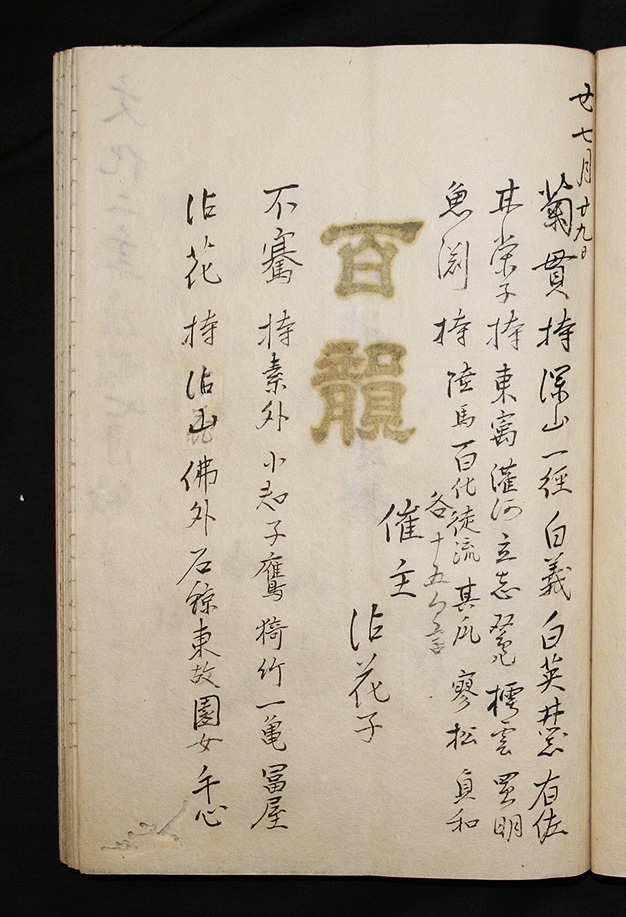 廿七月廿九日
菊貫持 深山 一徑 白義 白英 井 右佐
其棠子持 東寓 灌河 立志 雲 明
魚淵持 陸馬 百化 徒流 其瓜 寥松 貞和
各十五句
催主
沾花子
百韻
不騫持 素外 小知子 鷹 猗竹 一亀 冨屋
沾花持 沾山 佛外 石鯨 東故 園女 手心